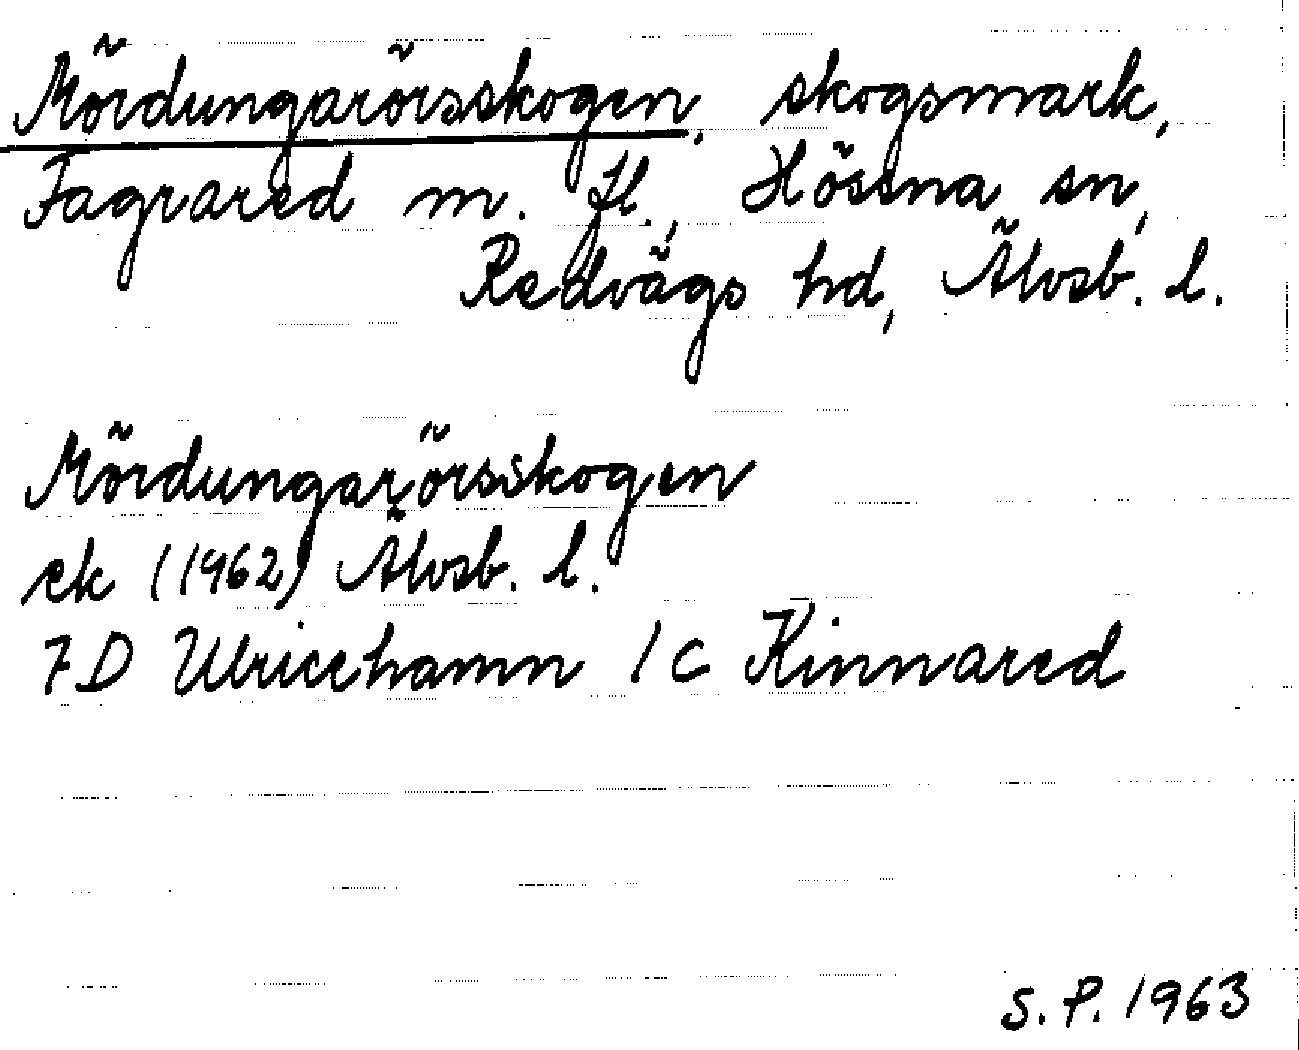 Mördungarörsskogen, skogsmark,
Fagrared m. fl., Hössna sn,
Redvägs hd, Älvsb. l.
Mördungarörsskogen
ek (1962) Älvsb. l.
7D Ulricehamn 1 c Kinnared
S. P. 1963